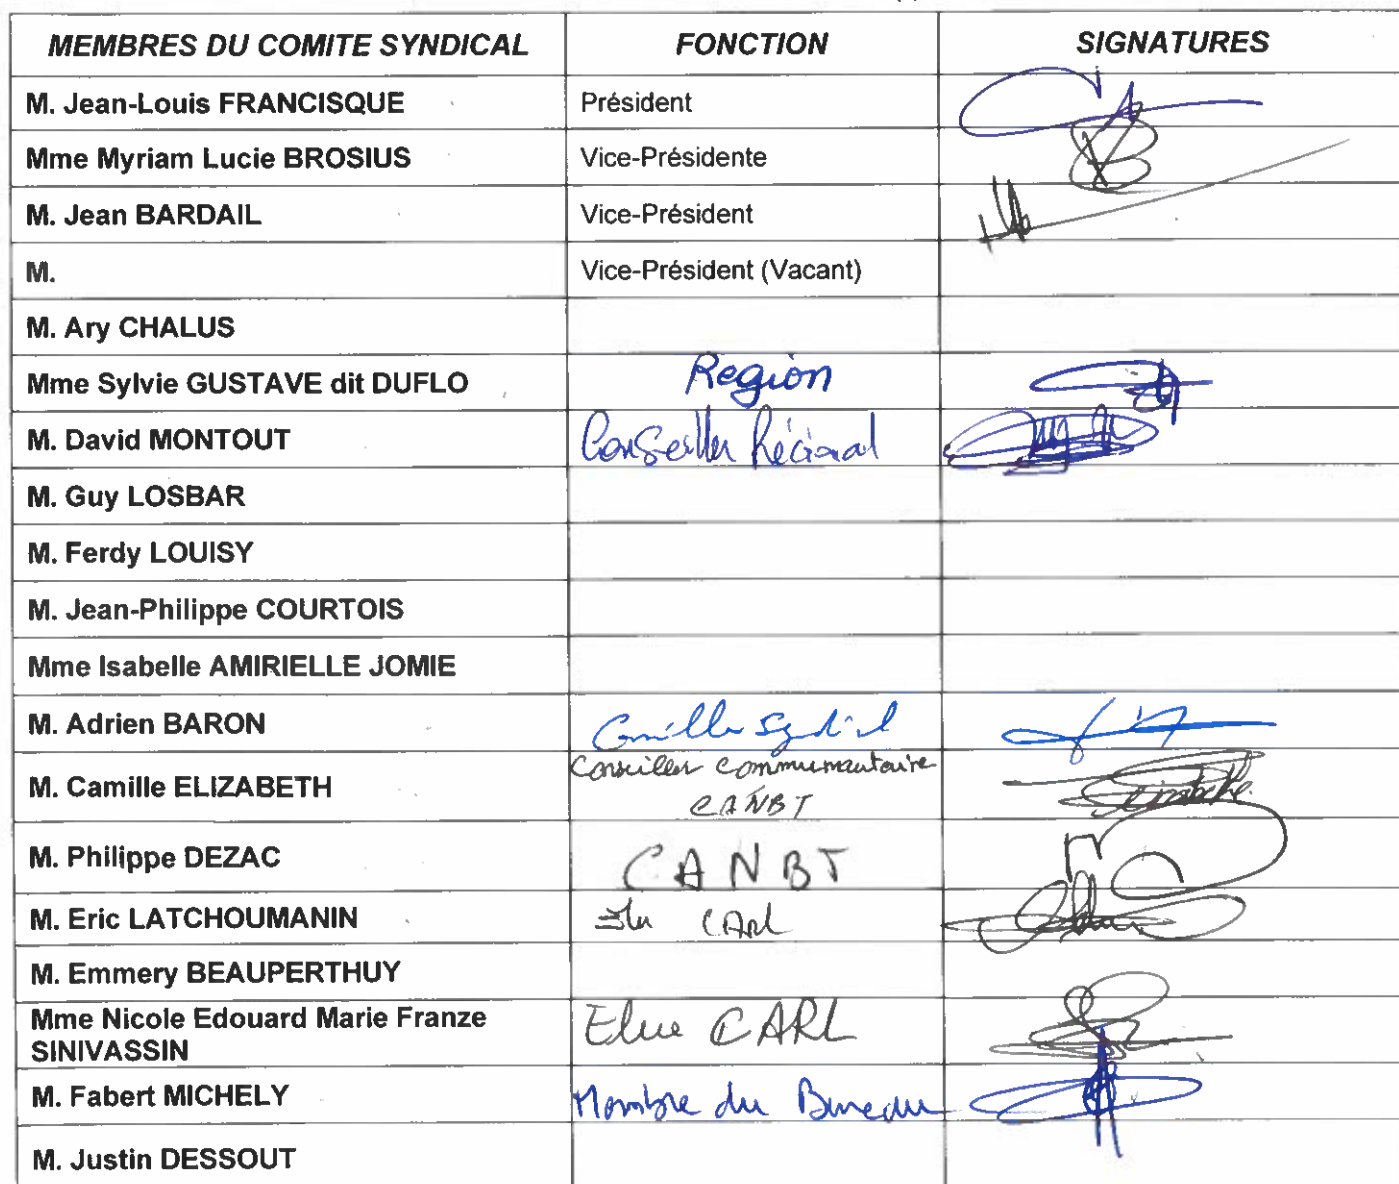 MEMBRES DU COMITE SYNDICAL FONCTION SIGNATURES
M. Jean-Louis FRANCISQUE Président
Mme Myriam Lucie BROSIUS Vice-Présidente
M. Jean BARDAIL Vice-Président
M. Vice-Président (Vacant)
M. Ary CHALUS
Mme Sylvie GUSTAVE dit DUFLO Region
M. David MONTOUT Conseiller Régional
M. Guy LOSBAR
M. Ferdy LOUISY
M. Jean-Philippe COURTOIS
Mme Isabelle AMIRIELLE JOMIE
M. Adrien BARON Conseiller Syndical
M. Camille ELIZABETH Conseiller Communautaire
CANBT
M. Philippe DEZAC CANBT
M. Eric LATCHOUMANIN Elu CARL
M. Emmery BEAUPERTHUY
Mme Nicole Edouard Marie Franze
SINIVASSIN Elue CARL
M. Fabert MICHELY Membre du Bureau
M. Justin DESSOUT